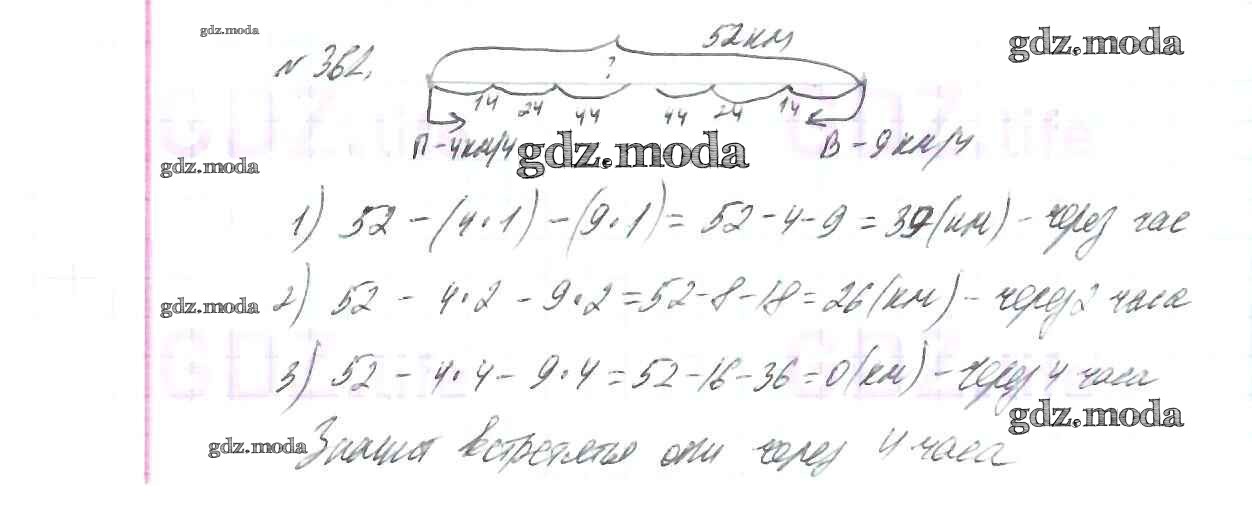 gdz.moda
52км
gdz.moda
№ 362.
?
1ч 2ч 4ч 4ч 2ч 1ч
GDZ.life GDZ.life
П - 4км/ч gdz.moda В - 9км/ч
gdz.moda
1) 52 - (4·1) - (9·1) = 52 - 4 - 9 = 39(км) - через час
gdz.moda 2) 52 - 4·2 - 9·2 = 52 - 8 - 18 = 26(км) - через 2 часа
GDZ.life GDZ.life
3) 52 - 4·4 - 9·4 = 52 - 16 - 36 = 0(км) - через 4 часа
gdz.moda
gdz.moda встретятся они через 4 часа